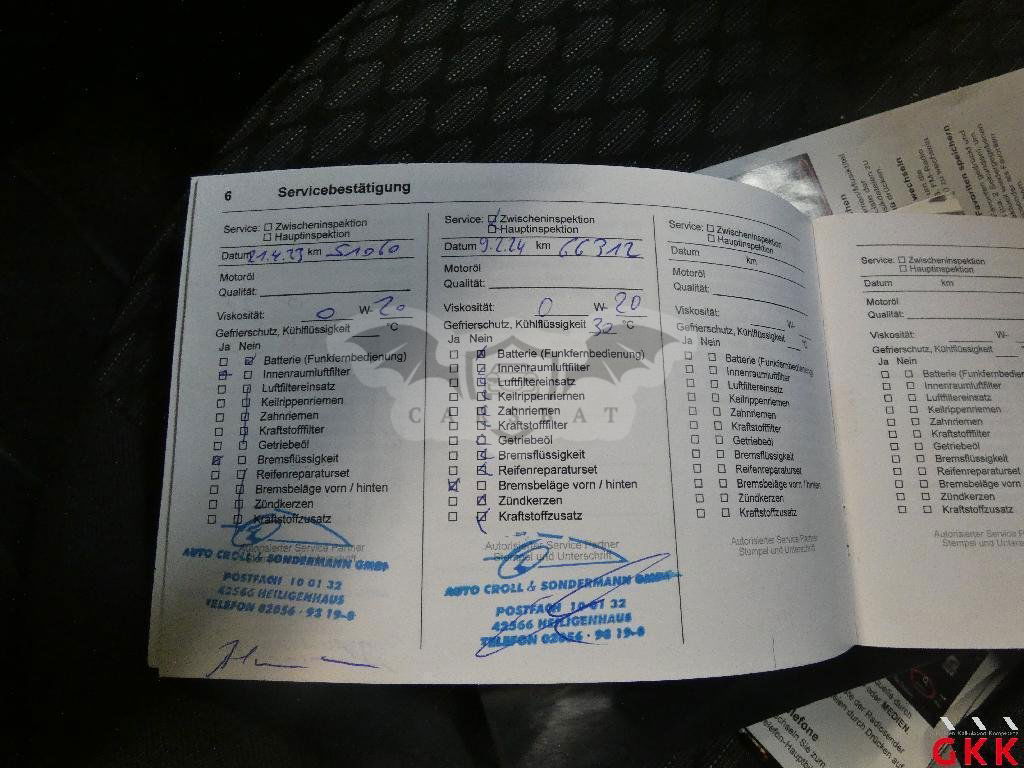 6 Servicebestätigung
Service: Zwischeninspektion
Hauptinspektion
Datum 21.4.23 km 51060
Motoröl
Qualität:
Viskosität: 0 W- 20
Gefrierschutz, Kühlflüssigkeit °C
Ja Nein
Batterie (Funkfernbedienung)
Innenraumluftfilter
Luftfiltereinsatz
Keilrippenriemen
Zahnriemen
Kraftstofffilter
Getriebeöl
Bremsflüssigkeit
Reifenreparaturset
Bremsbeläge vorn / hinten
Zündkerzen
Kraftstoffzusatz
Autorisierter Service Partner
AUTO CROLL & SONDERMANN GMBH
POSTFACH 10 01 32
42566 HEILIGENHAUS
TELEFON 02056 - 98 19-0
Service: Zwischeninspektion
Hauptinspektion
Datum 9.2.24 km 66312
Motoröl
Qualität:
Viskosität: 0 W- 20
Gefrierschutz, Kühlflüssigkeit 30 °C
Ja Nein
Batterie (Funkfernbedienung)
Innenraumluftfilter
Luftfiltereinsatz
Keilrippenriemen
Zahnriemen
Kraftstofffilter
Getriebeöl
Bremsflüssigkeit
Reifenreparaturset
Bremsbeläge vorn / hinten
Zündkerzen
Kraftstoffzusatz
Autorisierter Service Partner
Stempel und Unterschrift
AUTO CROLL & SONDERMANN GMBH
POSTFACH 10 01 32
42566 HEILIGENHAUS
TELEFON 02056 - 98 19-0
Service: Zwischeninspektion
Hauptinspektion
Datum km
Motoröl
Qualität:
Viskosität: W-
Gefrierschutz, Kühlflüssigkeit °C
Ja Nein
Batterie (Funkfernbedienung)
Innenraumluftfilter
Luftfiltereinsatz
Keilrippenriemen
Zahnriemen
Kraftstofffilter
Getriebeöl
Bremsflüssigkeit
Reifenreparaturset
Bremsbeläge vorn / hinten
Zündkerzen
Kraftstoffzusatz
Autorisierter Service Partner
Stempel und Unterschrift
Service: Zwischeninspektion
Hauptinspektion
Datum km
Motoröl
Qualität:
Viskosität: W-
Gefrierschutz, Kühlflüssigkeit
Ja Nein
Batterie
Innenraumluftfilter
Luftfiltereinsatz
Keilrippenriemen
Zahnriemen
Kraftstofffilter
Getriebeöl
Bremsflüssigkeit
Reifenreparaturset
Bremsbeläge vorn / hinten
Zündkerzen
Kraftstoffzusatz
Autorisierter Service Partner
Stempel und Unterschrift
Favoriten speichern
wechseln
oder MEDIEN
der Radiosender
durch Drücken auf
GKK